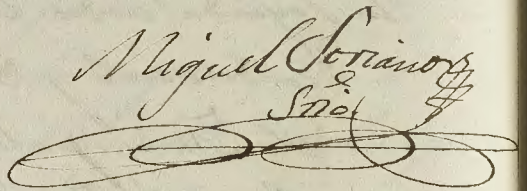 Miguel Soriano
Srio